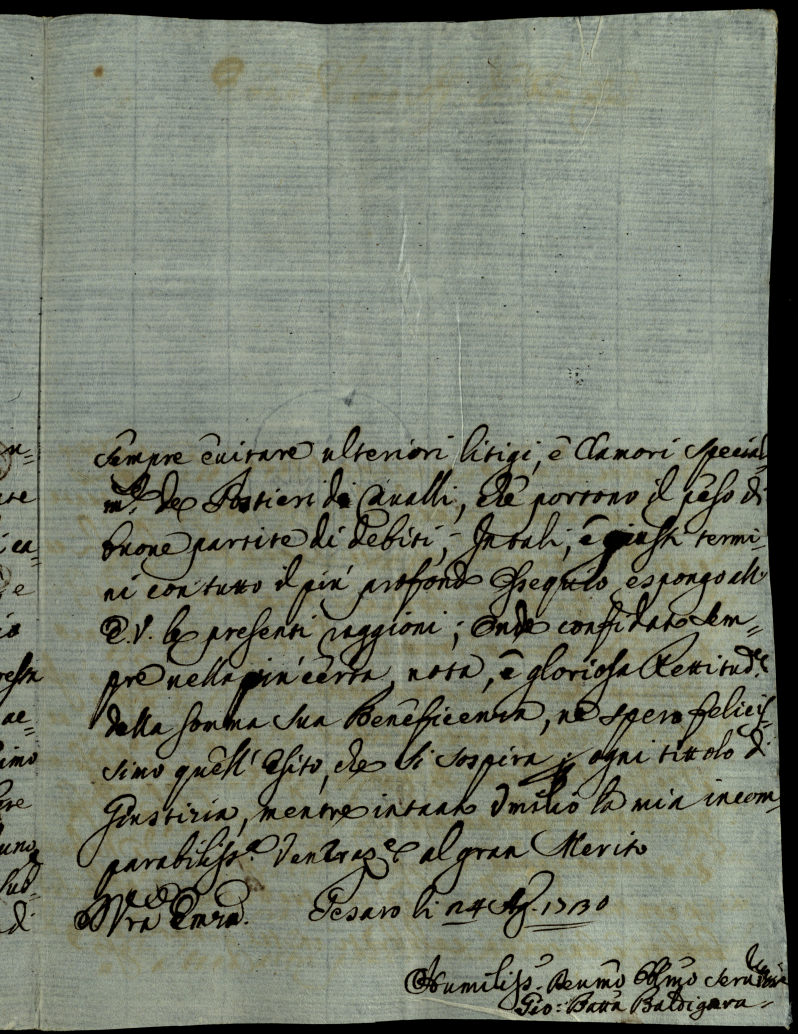 sempre euitare ulteriori litigi, è Clamori special=
m.te de Postieri di Caualli, che portono il peso di
buone partite di debiti; In tali, è giusti termi=
ni con tutto il più profondo Ossequio espongo all'
E.V. le presenti raggioni; Onde confidato sem=
pre nella più certa, nota, è gloriosa Rettitud.e
della somma sua Beneficenza, ne spero felicis=
simo quell' esito, che si sospira p ogni tittolo di
Giustizia, mentre intanto umilio la mia incom=
parabiliss.a Veneraz.e al gran Merito
Di Vra Emza. Pesaro li 24 Ag. 1730
Humiliss. Deumo Oblmo Seruitore
Gio: Batta Baldigara